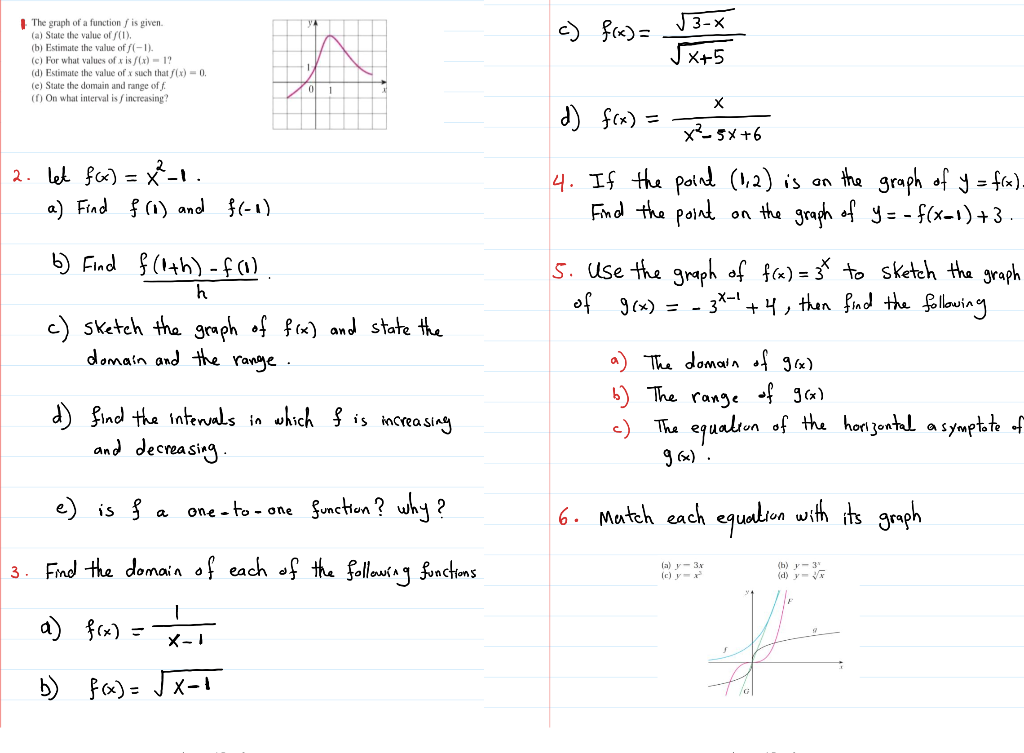 1. The graph of a function f is given.
(a) State the value of f(1).
(b) Estimate the value of f(−1).
(c) For what values of x is f(x) = 1?
(d) Estimate the value of x such that f(x) = 0.
(e) State the domain and range of f.
(f) On what interval is f increasing?
y
1
0 1 x
2. let f(x) = x² − 1 .
a) Find f(1) and f(-1)
b) Find f(1+h) - f(1) / h .
c) sketch the graph of f(x) and state the
domain and the range .
d) find the intervals in which f is increasing
and decreasing .
e) is f a one-to-one function? why?
3. Find the domain of each of the following functions
a) f(x) = 1 / x-1
b) f(x) = √x-1
c) f(x) = √3-x / √x+5
d) f(x) = x / x² - 5x + 6
4. If the point (1,2) is on the graph of y = f(x).
Find the point on the graph of y = - f(x-1) + 3 .
5. Use the graph of f(x) = 3ˣ to sketch the graph
of g(x) = - 3ˣ⁻¹ + 4 , then find the following
a) The domain of g(x)
b) The range of g(x)
c) The equation of the horizontal asymptote of
g(x) .
6. Match each equation with its graph
(a) y = 3x (b) y = 3ˣ
(c) y = x³ (d) y = ∛x
y
F
g
f
x
G